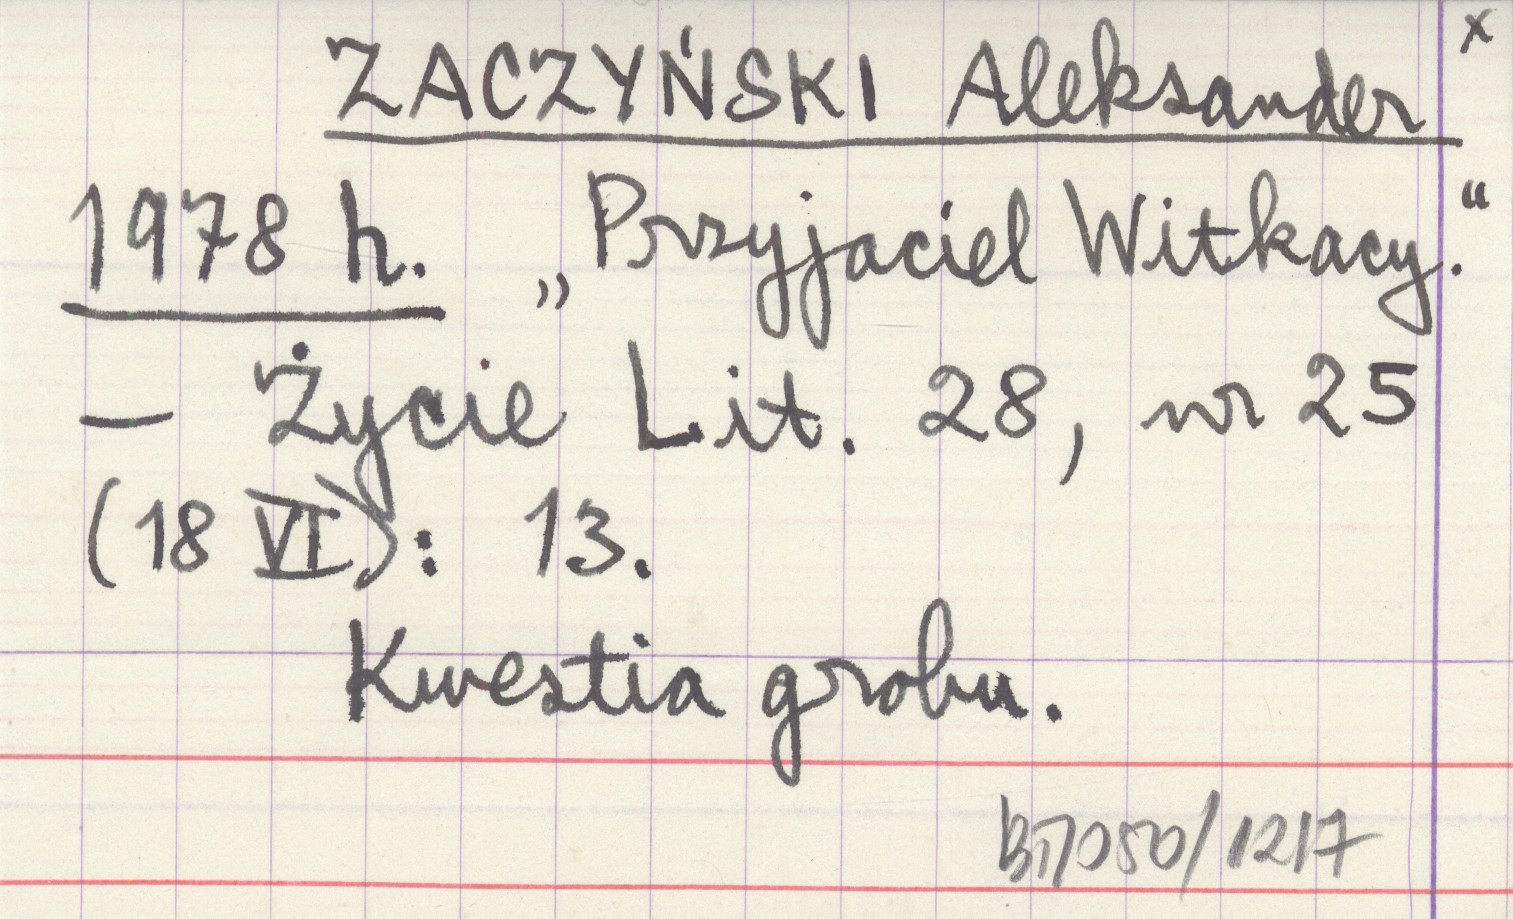 x
ZACZYŃSKI Aleksander
1978 h. „Przyjaciel Witkacy.“
— Życie Lit. 28, nr 25
(18 VI): 13.
Kwestia grobu.
/1217